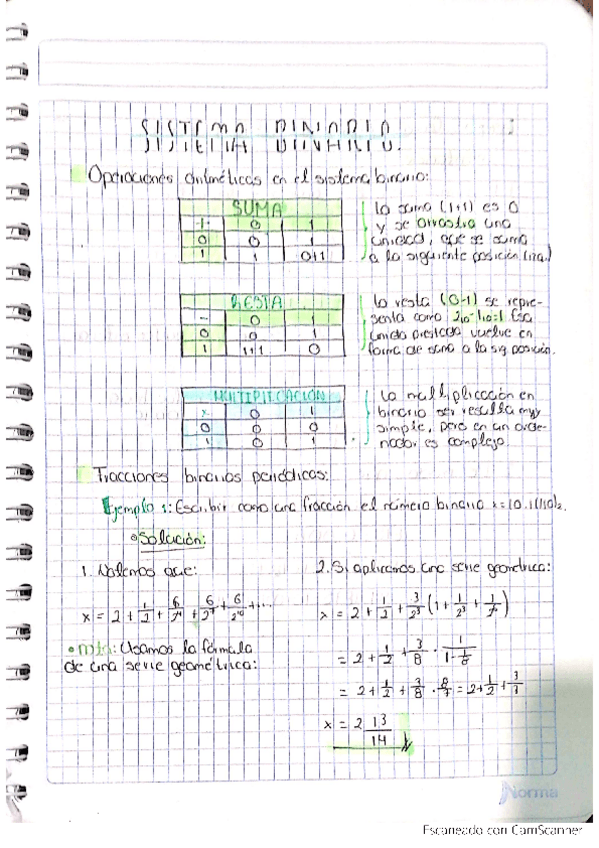 SISTEMA BINARIO.
Operaciones aritméticas en el sistema binario:
SUMA
+ 0 1
0 0 1
1 1 0+1
La suma (1+1) es 0
y se arrastra una
unidad, que se suma
a la siguiente posición (izq.)
RESTA
- 0 1
0 0 1
1 1+1 0
La resta (0-1) se repre-
senta como 210-110=1. Esa
unida prestada vuelve en
forma de suma a la sig posición.
MULTIPLICACIÓN
x 0 1
0 0 0
1 0 1
La multiplicación en
binario se resulta muy
simple, pero en un orde-
nador es complejo.
Fracciones binarias periódicas:
Ejemplo 1: Escribir como una fracción el número binario
Solución:
1. Notemos que:
x = 2 + 1/2 + 6/2⁴ + 6/2⁷ + 6/2¹⁰ + ...
nota: Usamos la fórmula
de una serie geométrica:
2. Si aplicamos una serie geométrica:
x = 2 + 1/2 + 3/2³ (1 + 1/2³ +
= 2 + 1/2 + 3/8 · 1/(1 - 1/8)
= 2 + 1/2 + 3/8 · 8/7 = 2 + 1/2 + 3/
x = 2 13/14
Norma
Escaneado con CamScanner